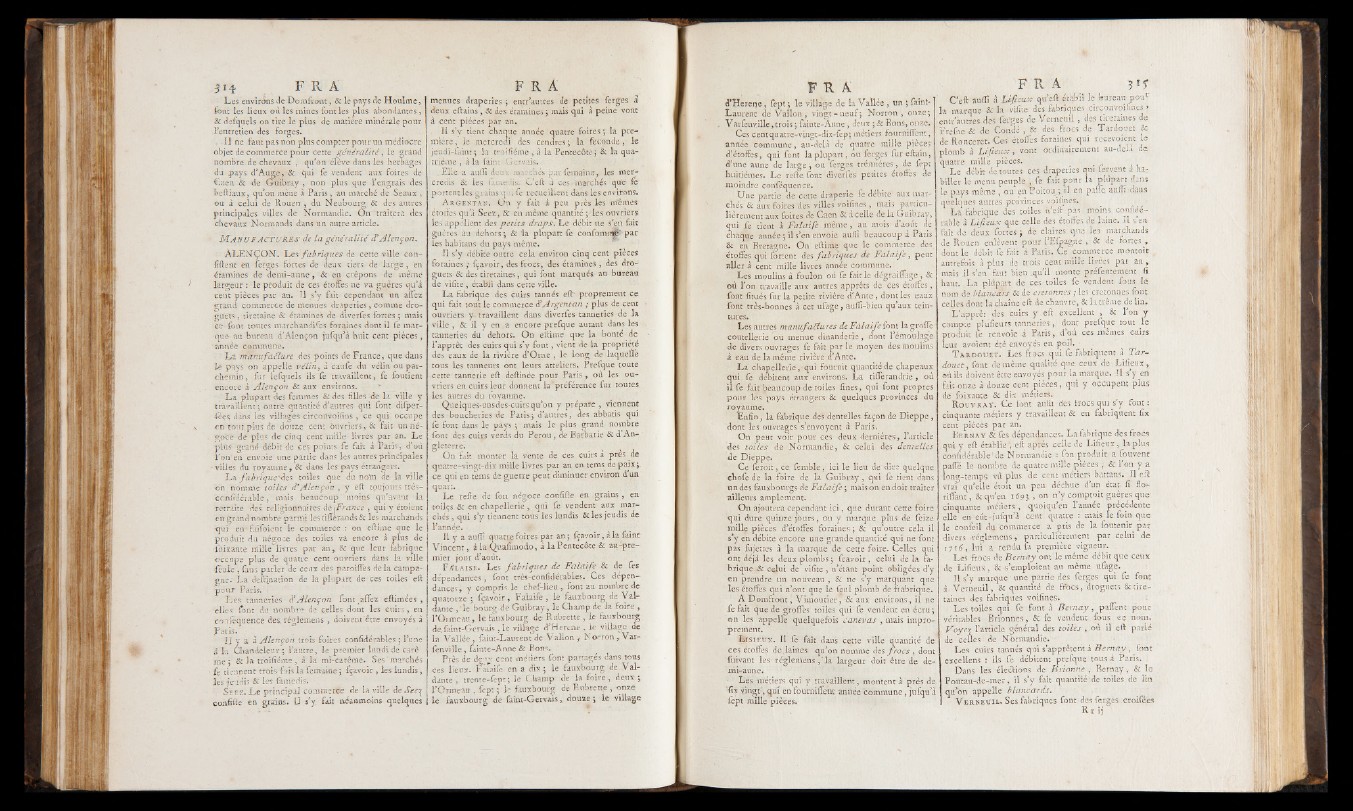 314 F R A
Les environs de Domfront, & le pays de Houlme,
sont les lieux où les mines sont les plus abondantes,
& desquels on tire le plus de matière minérale pour
l'entretien des forges.
Il ne faut pas non plus compter pour un médiocre
objet de commerce pour cette généralité, le grand
nombre de chevaux, qu'on élève dans les herbages
du pays d'Auge, & qui se vendent aux foires de
Caen & de Guibray, non plus que l'engrais des
bestiaux, qu'on mène à Paris, au marché de Sceaux;
ou à celui de Rouen, du Neubourg & des autres
principales villes de Normandie. On traitera des
chevaux Normands dans un autre article.
MANUFACTURES de la généralité d'Alençon.
ALENÇON. Les fabriques de cette ville con-
sistent en serges fortes de deux tiers de large, en
étamines de demi-aune, & en crépons de même
largeur: le produit de ces étoffes ne va guères qu'à
cent pièces par an. Il s'y fait cependant un assez
grand commerce de menues draperies, comme dro-
guets, tiretaine & étamines de diverses sortes; mais
ce sont toutes marchandises foraines dont il se mar-
que au bureau d'Alençon jusqu'à huit cent pièces,
année commune.
La manufacture des points de France, que dans
le pays on appelle vélin, à cause du vélin ou par-
chemin, sur lesquels ils se travaillent, se soutient
encore à Alençon & aux environs.
La plupart des femmes & des filles de la ville y
travaillent; outre quantité d'autres qui sont disper-
sées dans les villages circonvoisins, ce qui occupe
en tout plus de douze cent ouvriers, & fait un né-
goce de plus de cinq cent mille livres par an. Le
plus grand débit de ces points se fait à Paris, d'où
l'on en envoie une partie dans les autres principales
villes du royaume, & dans les pays étrangers.
La fabrique des toiles que du nom de la ville
on nomme toiles d'Alençon, y est toujours très-
considérable, mais beaucoup moins qu'avant la
retraite des religionnaires de France, qui y étoient
en grand nombre parmi les tisserands & les marchands
qui en faisoient le commerce: on estime que le
produit du négoce des toiles va encore à plus de
soixante mille livres par an, & que leur fabrique
occupe plus de quatre cent ouvriers dans la ville
seule, sans parler de ceux des paroisses de la campa-
gne. La destination de la plupart de ces toiles est
pour Paris.
Les tanneries d'Alençon sont assez estimées,
elles sont du nombre de celles dont les cuirs, en
conséquence des réglemens, doivent être envoyés à
Paris.
Il y a à Alençon trois foires considérables; l'une
à la Chandeleur; l'autre, le premier lundi de carê-
me; & la troisième, à la mi-carême. Ses marchés
se tiennent trois fois la semaine; sçavoir, les lundis,
les jeudis & les samedis.
SEEZ. Le principal commerce de la ville de Seez
consiste en grains. Il s'y fait néanmoins quelques
F R A
menues draperies; entr'autres de petites serges à
deux estains, & des étamines; mais qui à peine vont
à cent pièces par an.
Il s'y tient chaque année quatre foires; la pre-
mière, le mercredi des cendres; la seconde, le
jeudi-saint; la troisième, à la Pentecôte; & la qua-
trième, à la saint Gervais.
Elle a aussi deux marchés par semaine, les mer-
credis & les samedis. C'est à ces marchés que se
portent les grains qui se recueillent dans les environs.
ARGENTAN. On y fait à peu près les mêmes
étoffes qu'à Seez, & en même quantité; les ouvriers
les appellent des petits draps. Le débit ne s'en fait
guères au dehors; & la plupart se consomme par
les habitans du pays même.
Il s'y débite outre cela environ cinq cent pièces
foraines; sçavoir, des frocs, des étamines, des dro-
guets & des tiretaines, qui sont marqués au bureau
de visite, établi dans cette ville.
La fabrique des cuirs tannés est proprement ce
qui fait tout le commerce d'Argentan; plus de cent
ouvriers y travaillent dans diverses tanneries de la
ville, & il y en a encore presque autant dans les
tanneries du dehors. On estime que la bonté de
l'apprêt des cuirs qui s'y font, vient de la propriété
des eaux de la rivière d'Orne, le long de laquelle
tous les tanneurs ont leurs atteliers. Presque toute
cette tannerie est destinée pour Paris, où les ou-
vriers en cuirs leur donnent la préférence sur toutes
les autres du royaume.
Quelques-uns des cuirs qu'on y prépare, viennent
des boucheries de Paris; d'autres, des abbatis qui
se font dans le pays; mais le plus grand nombre
sont des cuirs verds du Perou, de Barbarie & d'An-
gleterre.
On fait monter la vente de ces cuirs à près de
quatre-vingt-dix mille livres par an en tems de paix;
ce qui en tems de guerre peut diminuer environ d'un
quart.
Le reste de son négoce consiste en grains, en
toiles & en chapellerie, qui se vendent aux mar-
chés, qui s'y tiennent tous les lundis & les jeudis de
l'année.
Il y a aussi quatre foires par an; sçavoir, à la saint
Vincent, à la Quasimodo, à la Pentecôte & au pre-
mier jour d'août.
FALAISE. Les fabriques de Falaise & de ses
dépendances, sont très-considérables. Ces dépen-
dances, y compris le chef-lieu, sont au nombre de
quatorze; sçavoir, Falaise, le fauxbourg de Val-
dante, le bourg de Guibray, le Champ de la foire,
l'Ormeau, le fauxbourg de Rabrette, le fauxbourg
de saint-Gervais, le village d'Herene, le village de
la Vallée, saint-Laurent de Vallon, Norron, Var-
fenville, sainte-Anne & Bons.
Près de deux cent métiers sont partagés dans tous
ces lieux. Falaise en a dix; le fauxbourg de Val-
dante, trente-sept; le Champ de la foire, deux;
l'Ormeau, sept; le fauxbourg de Rabrette, onze;
le fauxbourg de saint-Gervais, douze; le village
F R A
d'Herene, sept; le village de la Vallée, un; saint-
Laurent de Vallon, vingt-neuf; Norron, onze;
Varfenville, trois; sainte-Anne, deux; & Bons, onze.
Ces cent quatre-vingt-dix-sept métiers fournissent,
année commune, au-delà de quatre mille pièces
d'étoffes, qui sont la plupart, ou serges sur estain,
d'une aune de large, ou serges trémières, de sept
huitièmes. Le reste sont diverses petites étoffes de
moindre conséquence.
Une partie de cette draperie se débite aux mar-
chés & aux foires des villes voisines, mais particu-
lièrement aux foires de Caen & à celle de la Guibray,
qui se tient à Falaise même, au mois d'août de
chaque année; il s'en envoie aussi beaucoup à Paris
& en Bretagne. On estime que le commerce des
étoffes qui sortent des fabriques de Falaise, peut
aller à cent mille livres année commune.
Les moulins à foulon où se fait le dégraissage, &
où l'on travaille aux autres apprêts de ces étoffes,
sont situés sur la petite rivière d'Ante, dont les eaux
sont très-bonnes à cet usage, aussi-bien qu'aux tein-
tures.
Les autres manufactures de Falaise sont la grosse
coutellerie ou menue dinanderie, dont l'émoulage
de divers ouvrages se fait par le moyen des moulins
à eau de la même rivière d'Ante.
La chapellerie, qui fournit quantité de chapeaux
qui se débitent aux environs. La tisseranderie, où
il se fait beaucoup de toiles fines, qui sont propres
pour les pays étrangers & quelques provinces du
royaume.
Enfin, la fabrique des dentelles façon de Dieppe,
dont les ouvrages s'envoyent à Paris.
On peut voir pour ces deux dernières, l'article
des toiles de Normandie, & celui des dentelles
de Dieppe.
Ce seroit, ce semble, ici le lieu de dire quelque
chose de la foire de la Guibray, qui se tient dans
un des fauxbourgs de Falaise; mais on en doit traiter
ailleurs amplement.
On ajoutera cependant ici, que durant cette foire
qui dure quinze jours, on y marque plus de seize
mille pièces d'étoffes foraines; & qu'outre cela il
s'y en débite encore une grande quantité qui ne sont
pas sujettes à la marque de cette foire. Celles qui
ont déjà les deux plombs; sçavoir, celui de la fa-
brique & celui de visite, n'étant point obligées d'y
en prendre un nouveau, & ne s'y marquant que
les étoffes qui n'ont que le seul plomb de fabrique.
A Domfront, Vimoutier, & aux environs, il ne
se fait que de grosses toiles qui se vendent en écru;
on les appelle quelquefois canevas, mais impro-
prement.
LISIEUX. Il se fait dans cette ville quantité de
ces étoffes de laines qu'on nomme des frocs, dont
suivant les réglemens, la largeur doit être de de-
mi-aune.
Les métiers qui y travaillent, montent à près de
six vingt, qui en fournissent année commune, jusqu'à
sept mille pièces.
F R A 315
C'est aussi à Lisieux qu'est établi le bureau pour
la marque & la visite des fabriques circonvoisines,
entr'autres des serges de Verneuil, des tiretaines de
Fresne & de Condé, & des frocs de Tardouet &
de Ronceret. Ces étoffes foraines qui reçoivent le
plomb à Lisieux, vont ordinairement au-delà de
quatre mille pièces.
Le débit de toutes ces draperies qui servent à ha-
biller le menu peuple, se fait pour la plupart dans
le pays même, ou en Poitou; il en passe aussi dans
quelques autres provinces voisines.
La fabrique des toiles n'est pas moins considé-
rable à Lisieux que celle des étoffes de laine. Il s'en
fait de deux sortes; de claires que les marchands
de Rouen enlèvent pour l'Espagne, & de fortes,
dont le débit se fait à Paris. Ce commerce montoit
autrefois à plus de trois cent mille livres par an,
mais il s'en faut bien qu'il monte présentement si
haut. La plupart de ces toiles se vendent sous le
nom de blancars & de cretonnes; les cretonnes sont
celles dont la chaîne est de chanvre, & la trême de lin.
L'apprêt des cuirs y est excellent, & l'on y
compte plusieurs tanneries, dont presque tout le
produit se renvoie à Paris, d'où ces mêmes cuirs
leur avoient été envoyés en poil.
TARDOUET. Les frocs qui se fabriquent à Tar-
douet, sont de même qualité que ceux de Lisieux,
où ils doivent être envoyés pour la marque. Il s'y en
fait onze à douze cent pièces, qui y occupent plus
de soixante & dix métiers.
ROUVRAY. Ce sont aussi des frocs qui s'y font:
cinquante métiers y travaillent & en fabriquent six
cent pièces par an.
BERNAY & ses dépendances. La fabrique des frocs
qui y est établie, est après celle de Lisieux, la plus
considérable de Normandie: son produit a souvent
passé le nombre de quatre mille pièces, & l'on y a
long-temps vû plus de cent métiers battans. Il est
vrai qu'elle étoit un peu déchue d'un état si flo-
rissant, & qu'en 1693, on n'y comptoit guères que
cinquante métiers, quoiqu'en l'année précédente
elle en eût jusqu'à cent quatre: mais le soin que
le conseil du commerce a pris de la soutenir par
divers réglemens, particulièrement par celui de
1716, lui a rendu sa première vigueur.
Les frocs de Bernay ont le même débit que ceux
de Lisieux, & s'emploient au même usage.
Il s'y marque une partie des serges qui se font
à Verneuil, & quantité de frocs, droguets & tire-
taines des fabriques voisines.
Les toiles qui se font à Bernay, passent pour
véritables Brionnes, & se vendent sous ce nom.
Voyez l'article général des toiles, où il est parlé
de celles de Normandie.
Les cuirs tannés qui s'apprêtent à Bernay, sont
excellens: ils se débitent presque tous à Paris.
Dans les élections de Brionne, Bernay, & le
Ponteau-de-mer, il s'y fait quantité de toiles de lin
qu'on appelle blancards.
VERNEUIL. Ses fabriques sont des serges croisées
R r ij